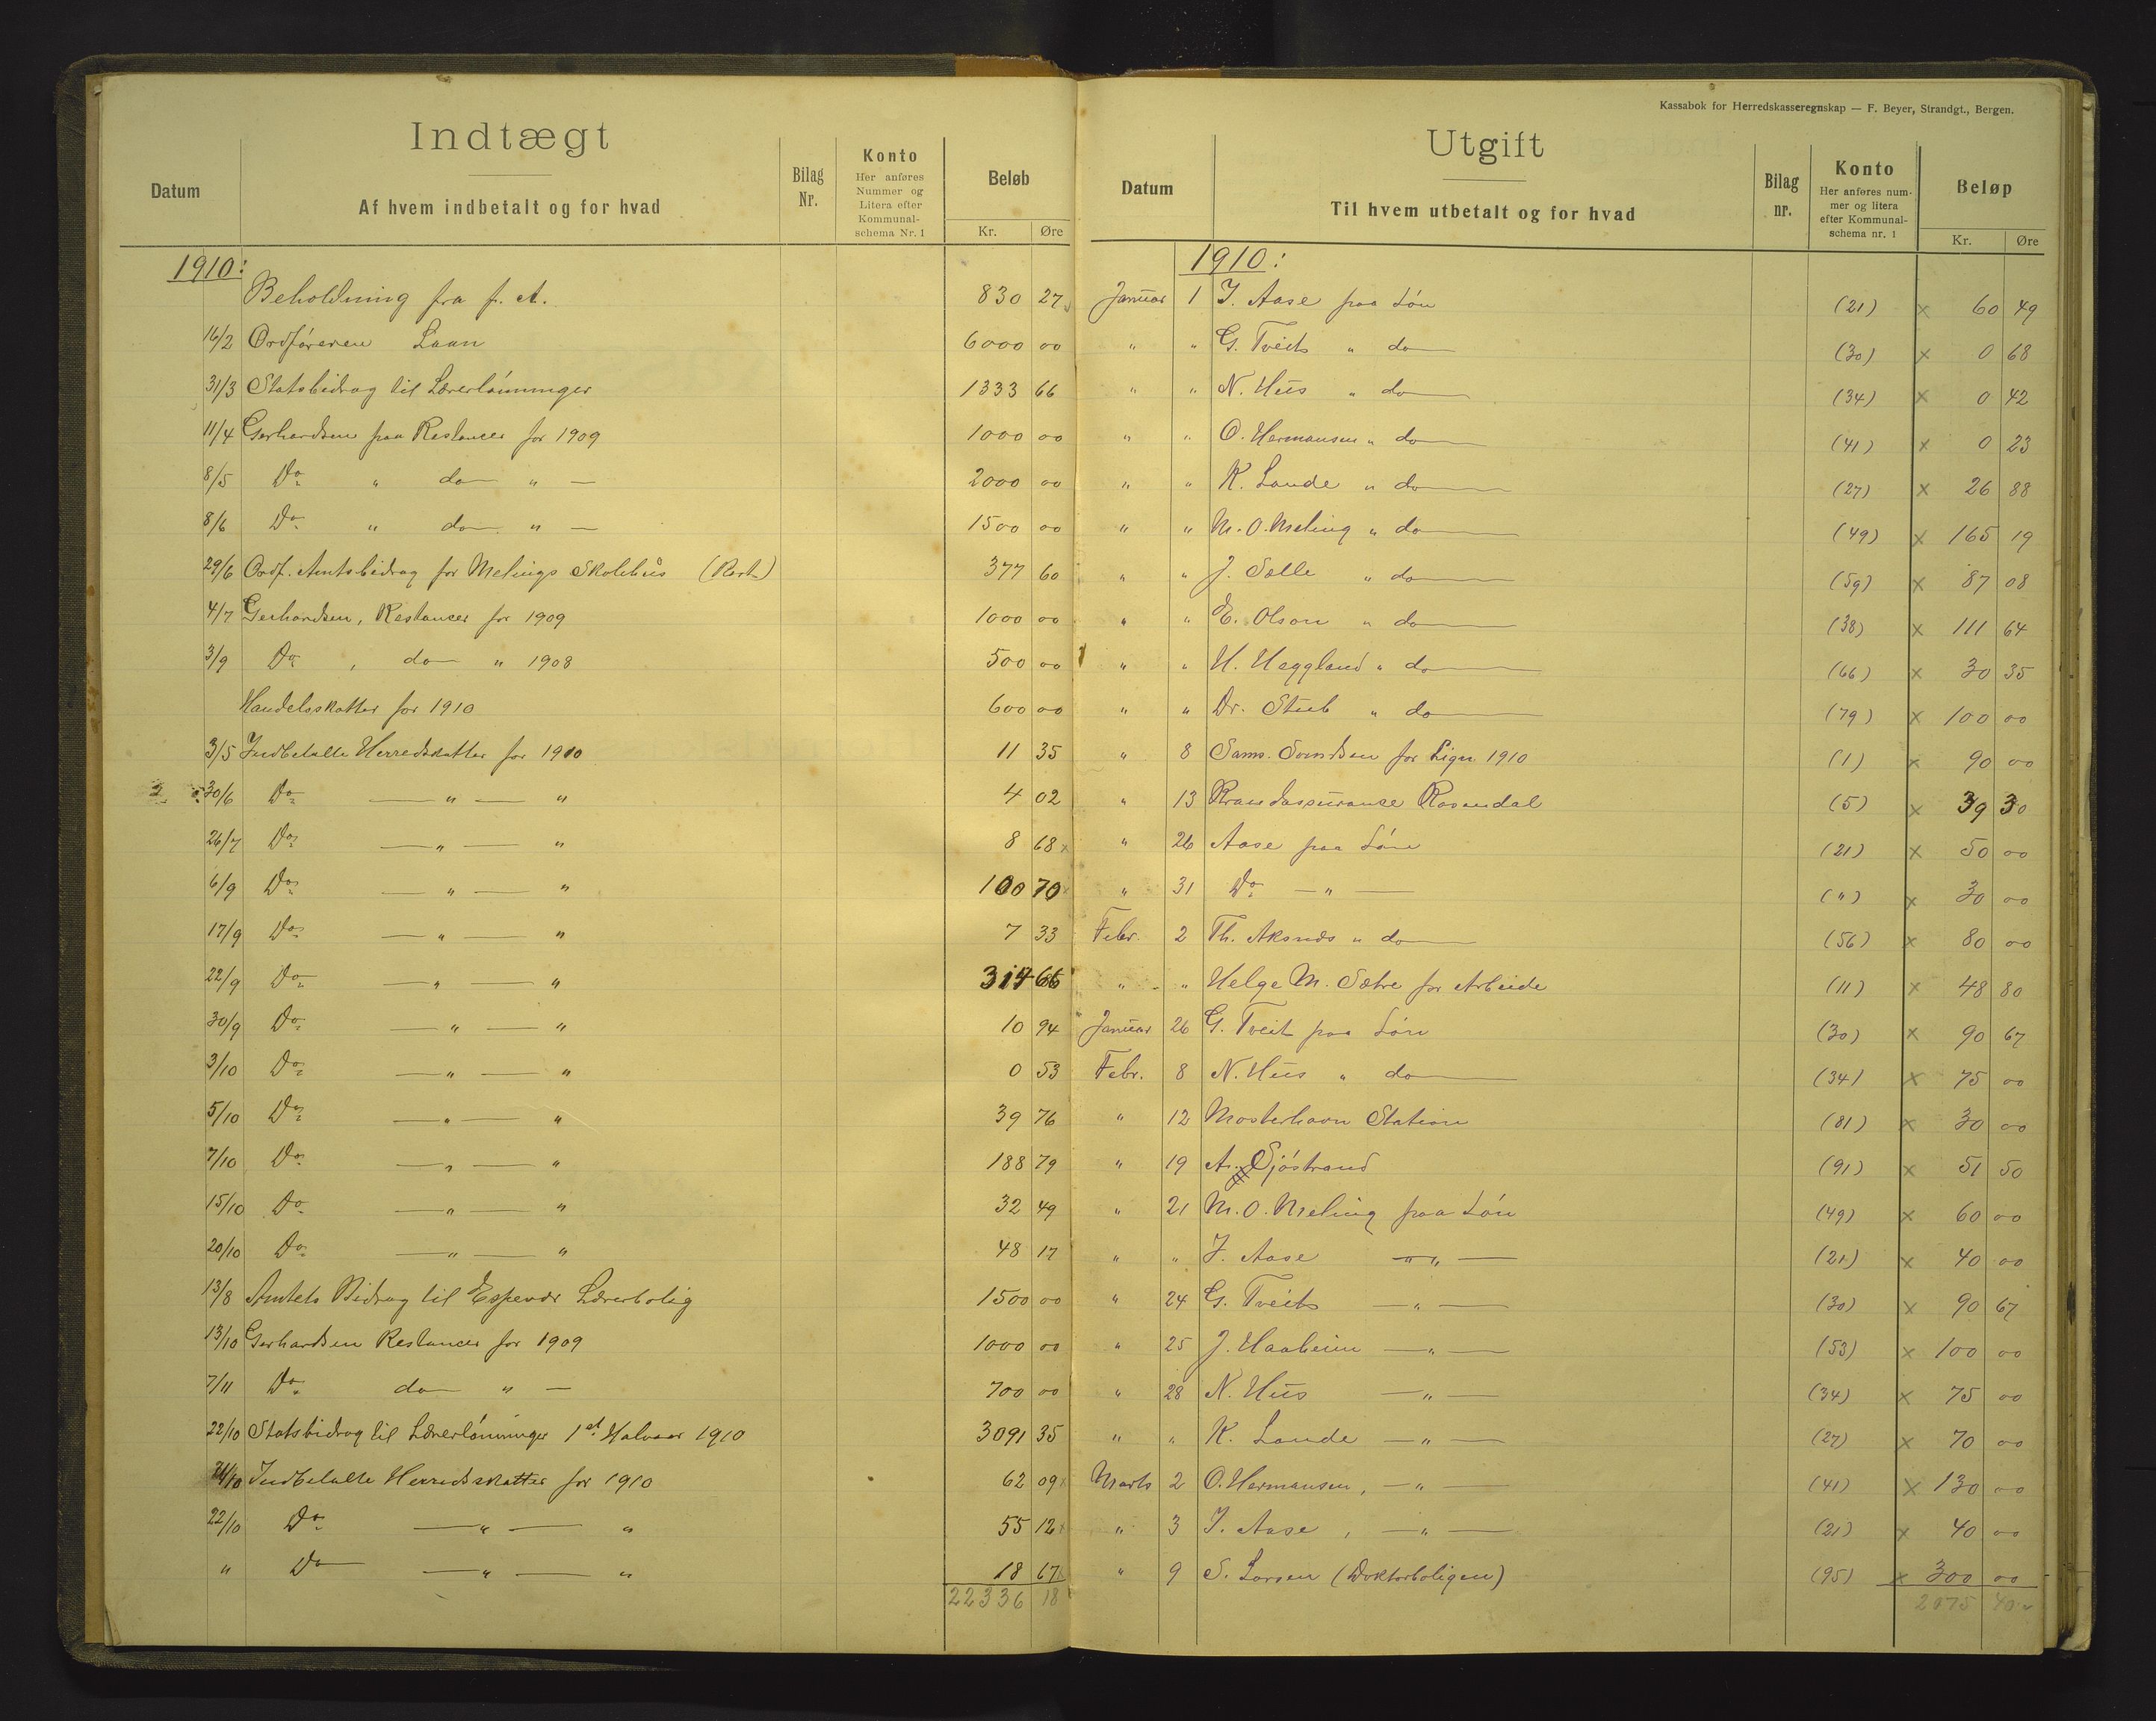 Indtægt
Datum
Af hvem indbetalt og for hvad
Bilag Nr.
Konto
Her anføres Nummer og Litera efter Kommunalschema Nr. 1
Beløb
Kr. Øre
1910:
Beholdning fra f. A. 830 27
16/2 Ordføreren Laan 6000 00
31/3 Statsbidrag til Lærerlønninger 1333 66
11/4 Gerhardsen paa Restancer for 1909 1000 00
8/5 Do „ do „ — 2000 00
8/6 Do „ do „ — 1500 00
29/6 Ordf. Amtsbidrag for Melings Skolehus (Rest) 377 60
4/7 Gerhardsen, Restancer for 1909 1000 00
3/9 Do , do „ 1908 500 00
Handelsskatter for 1910 600 00
3/5 Indbetalte Herredskatter for 1910 11 35
30/6 Do — „ — „ 4 02
26/7 Do — „ — „ 8 68
6/9 Do — „ — „ 100 70
17/9 Do — „ — „ 7 33
22/9 Do — „ — „
30/9 Do — „ — „ 10 94
3/10 Do — „ — „ 0 53
5/10 Do — „ — „ 39 76
7/10 Do — „ — „ 188 79
15/10 Do — „ — „ 32 49
20/10 Do — „ — „ 48 17
13/8 Amtets Bidrag til Espevær Lærerbolig 1500 00
13/10 Gerhardsen Restancer for 1909 1000 00
7/11 Do do „ — 700 00
22/10 Statsbidrag til Lærerlønninger 1st Halvaar 1910 3091 35
Indbetalte Herredsskatter for 1910 62 09
22/10 Do — „ — „ 55 12
„ Do — „ — „ 18 67
22336 18
Kassabok for Herredskasseregnskap — F. Beyer, Strandgt., Bergen.
Utgift
Datum
Til hvem utbetalt og for hvad
Bilag nr.
Konto
Her anføres nummer og litera efter Kommunalschema nr. 1
Beløp
Kr. Øre
1910:
Januar 1 J. Aase paa Løn (21) × 60 49
„ „ G. Tveit „ do (30) × 0 68
„ „ N. Hus „ do (34) × 0 42
„ „ O. Hermansen „ do (41) × 0 23
„ „ K. Lande „ do (27) × 26 88
„ „ M. O. Meling „ do (49) × 165 19
„ „ J. Sælle „ do (59) × 87 08
„ „ E. Olson „ do (38) × 111 64
„ „ H. Heggland „ do (66) × 30 35
„ „ Dr. Stub „ do (79) × 100 00
„ 8 Sams. for Lign 1910 (1) × 90 00
„ 13 Brandassurance Rosendal (5) × 39 30
„ 26 Aase paa Løn (21) × 50 00
„ 31 Do — „ — („) × 30 00
Febr. 2 Th. Aksnes „ do (56) × 80 00
„ „ Helge M. Sætre for Arbeide (11) × 48 80
Januar 26 G. Tveit paa Løn (30) × 90 67
Febr. 8 N. Hus „ do (34) × 75 00
„ 12 Mosterhavn Station (81) × 30 00
„ 19 A. Sjöstrand (91) × 51 50
„ 21 M. O. Meling paa Løn (49) × 60 00
„ „ J. Aase — „ — (21) × 40 00
„ 24 G. Tveit — „ — (30) × 90 67
„ 25 J. Haaheim — „ — (53) × 100 00
„ 28 N. Hus — „ — (34) × 75 00
„ „ K. Lande — „ — (27) × 70 00
Marts 2 O. Hermansen, — „ — (41) × 130 00
„ 3 J. Aase , — „ — (21) × 40 00
„ 9 S. Larsen (Doktorboligen) (95) × 300 00
2075 40